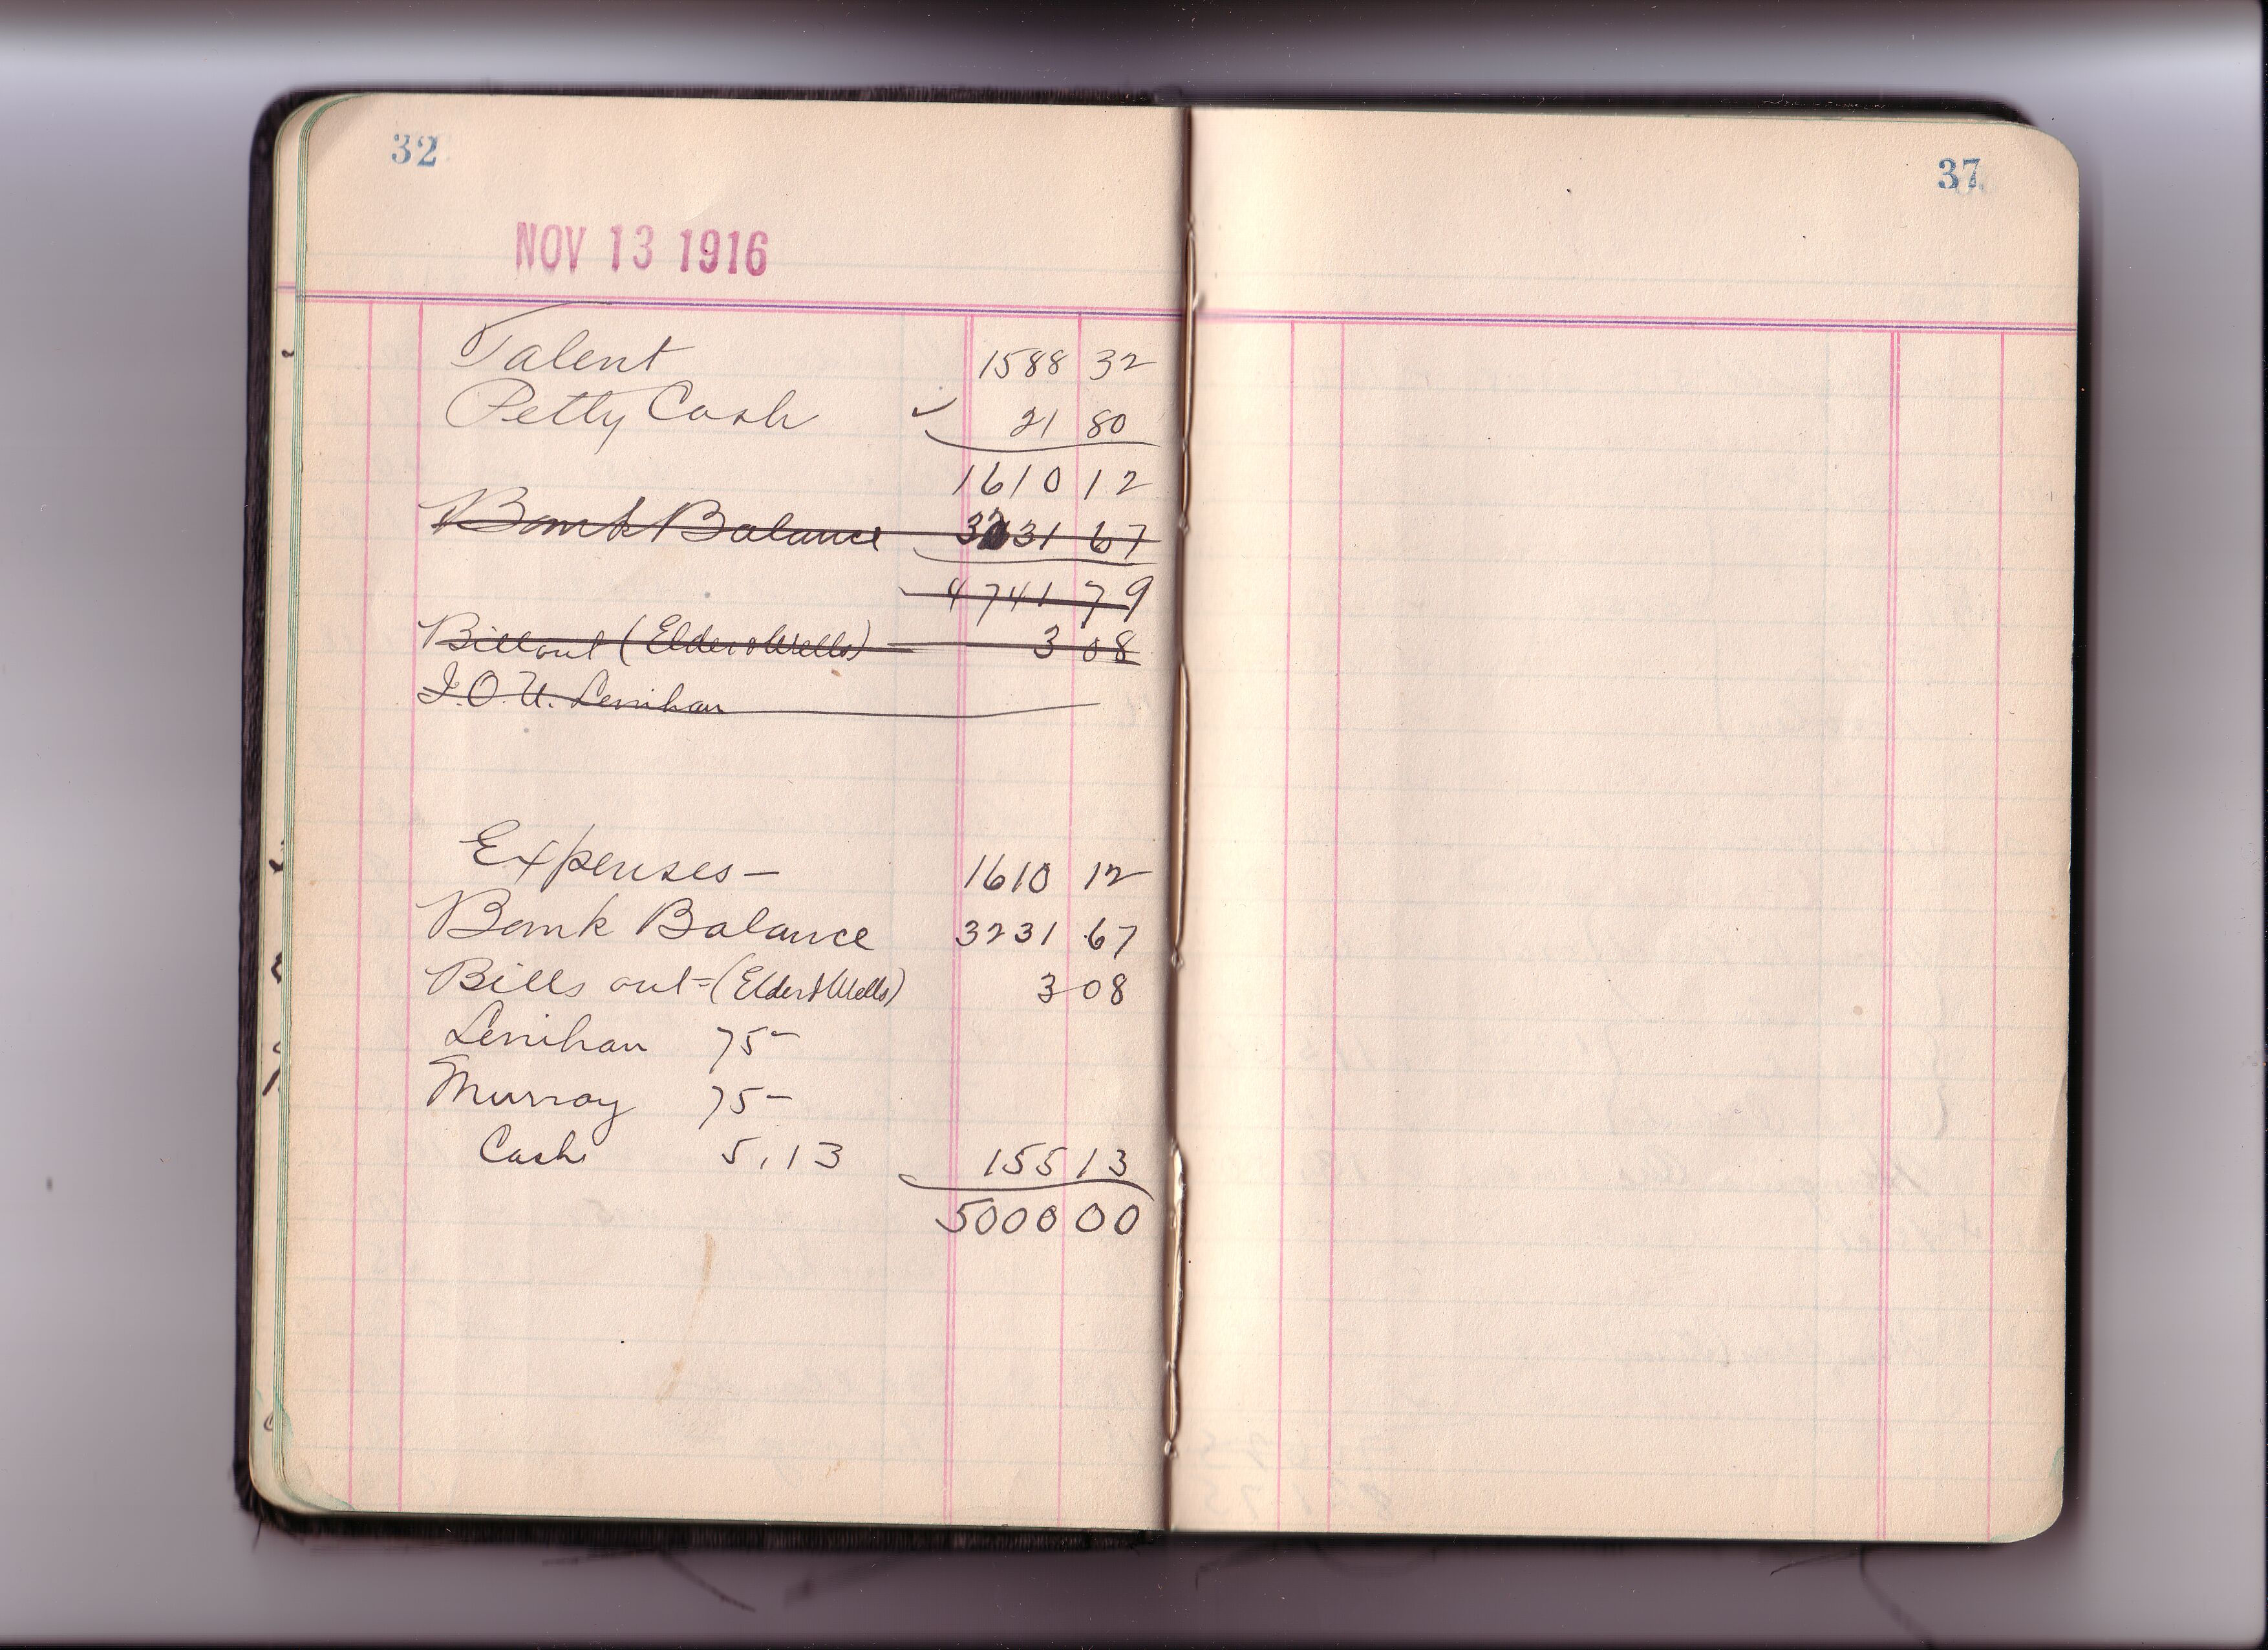 32
NOV 13 1916
Talent 1588 32
Petty Cash ✓ 21 80
1610 12
Bank Balance 3231 67
4741 79
Bill out (Elder & Wells) 3 08
I.O.U. Lenihan
Expenses— 1610 12
Bank Balance 3231 67
Bills out=(Elder & Wells) 3 08
Lenihan 75-
Murray 75-
Cash 5.13 155 13
5000 00
37